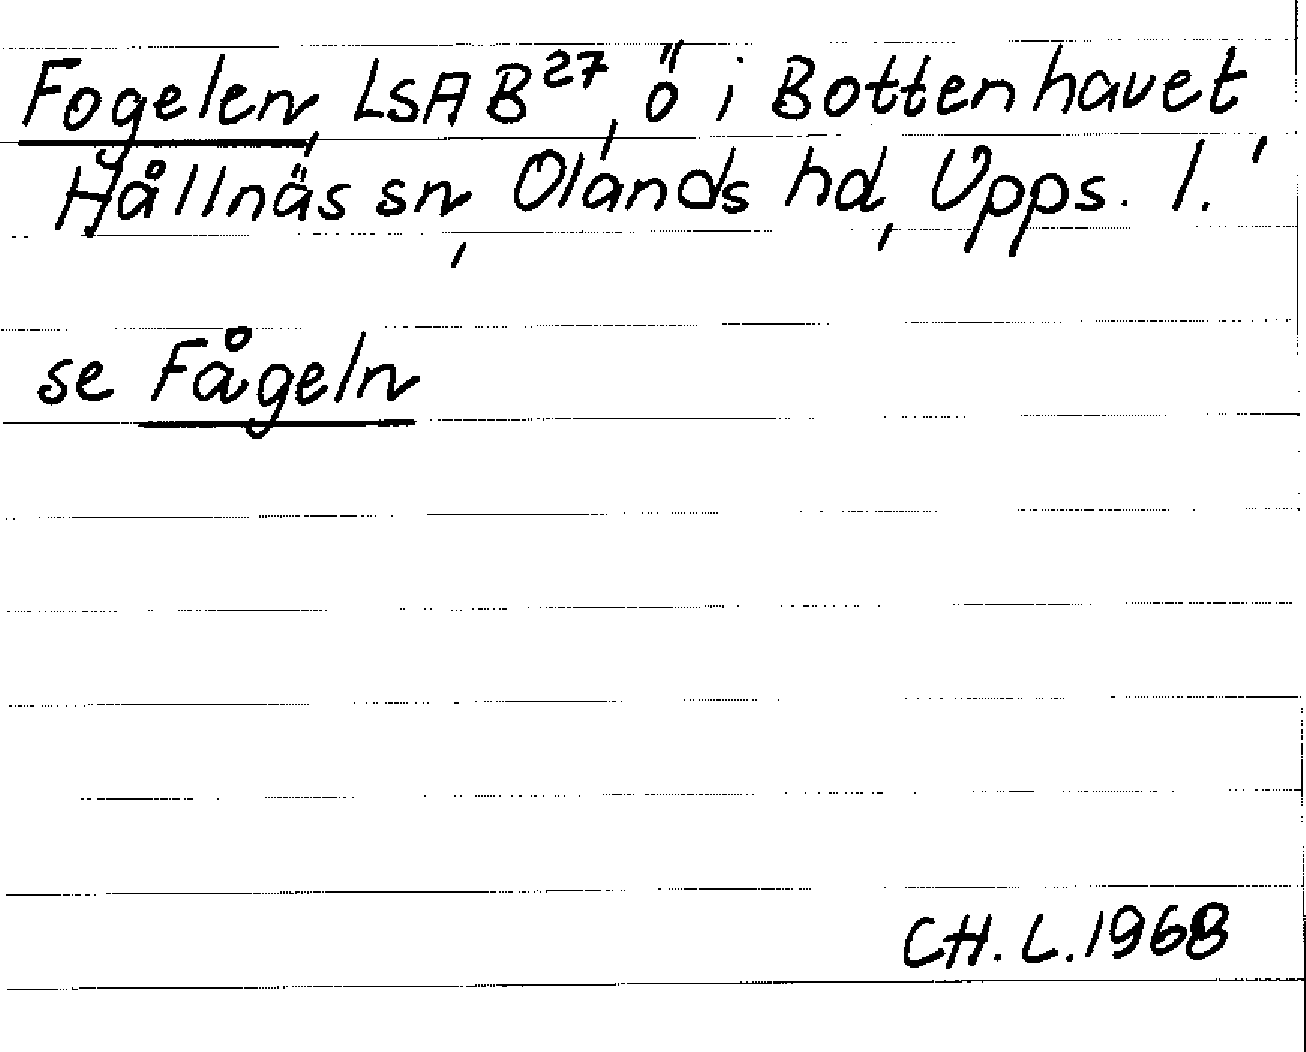 Fogelen, LSA B²⁷, ö i Bottenhavet,
Hållnäs sn, Olands hd, Upps. l.
se Fågeln
CH. L. 1968